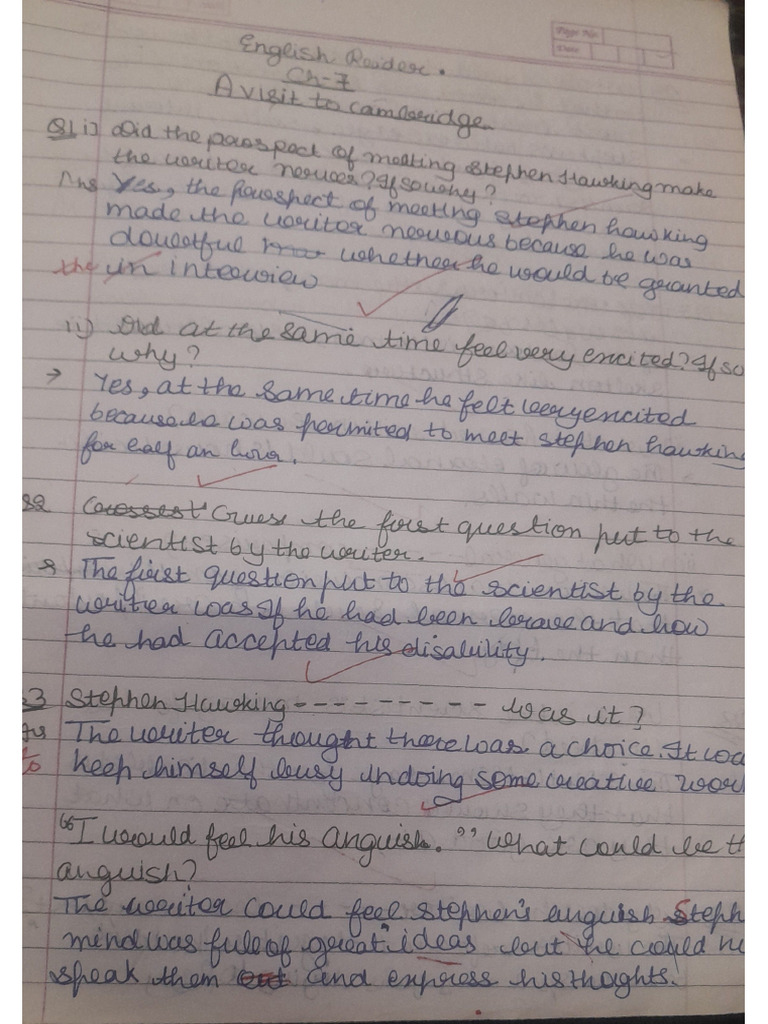 Page No.
Date
English Reader.
Ch-7
A visit to cambridge.
Q1 i) Did the prospect of meeting Stephen Hawking make
the writer nervous? If so why?
Ans Yes, the prospect of meeting stephen hawking
made the writer nervous because he was
doubtful whether he would be granted
the in interview
ii) Did at the same time feel very encited? If so
why?
→ Yes, at the same time he felt very encited
because he was permited to meet stephen hawking
for half an hour.
Guess the first question put to the
scientist by the writer.
The first question put to the scientist by the
writer was If he had been brave and how
he had accepted his disability.
3 Stephen Hawking - - - - - - - - - was it?
The writer thought there was a choice. It wa
to keep himself busy in doing some creative wor
"I would feel his anguish." What could be th
anguish?
The writer could feel stephen's anguish Steph
mind was full of great ideas but he could n
speak them and express his thoghts.